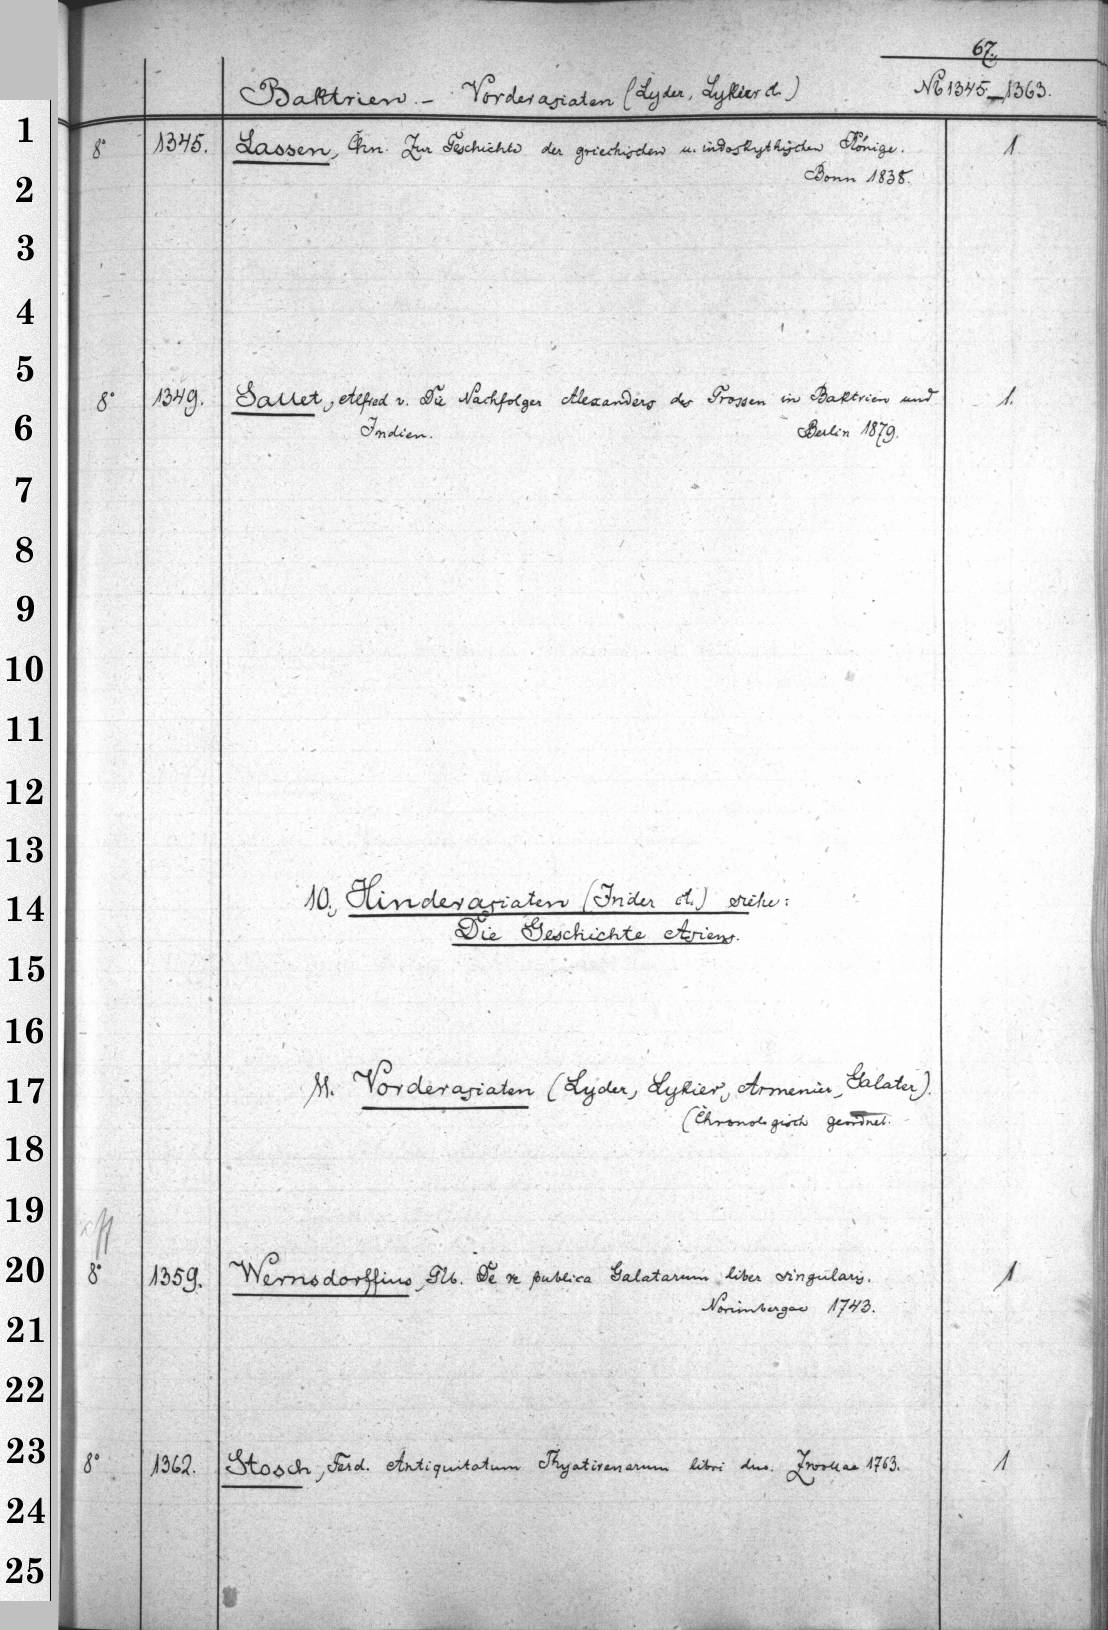 67.
Baktrien. – Vorderasiaten (Lyder, Lykier et.)
№ 1345–1363.
1
8° 1345. Lassen, Chn. Zur Geschichte der griechischen u. indoskythischen Könige. 1
2
Bonn 1838.
3
4
5
8° 1349. Sallet, Alfred v. Die Nachfolger Alexanders des Grossen in Baktrien und 1.
6
Indien. Berlin 1879.
7
8
9
10
11
12
13
14
10., Hinderasiaten (Inder et.) siehe:
Die Geschichte Asiens.
15
16
17
11. Vorderasiaten (Lyder, Lykier, Armenier, Galater).
(Chronologisch geordnet.
18
19
20
8° 1359. Wernsdorffius, Glb. De re publica Galatarum liber singularis. 1
Norimbergae 1743.
21
22
23
8° 1362. Stosch, Ferd. Antiquitatum Thyatirenarum libri duo. Zwollae 1763. 1
24
25